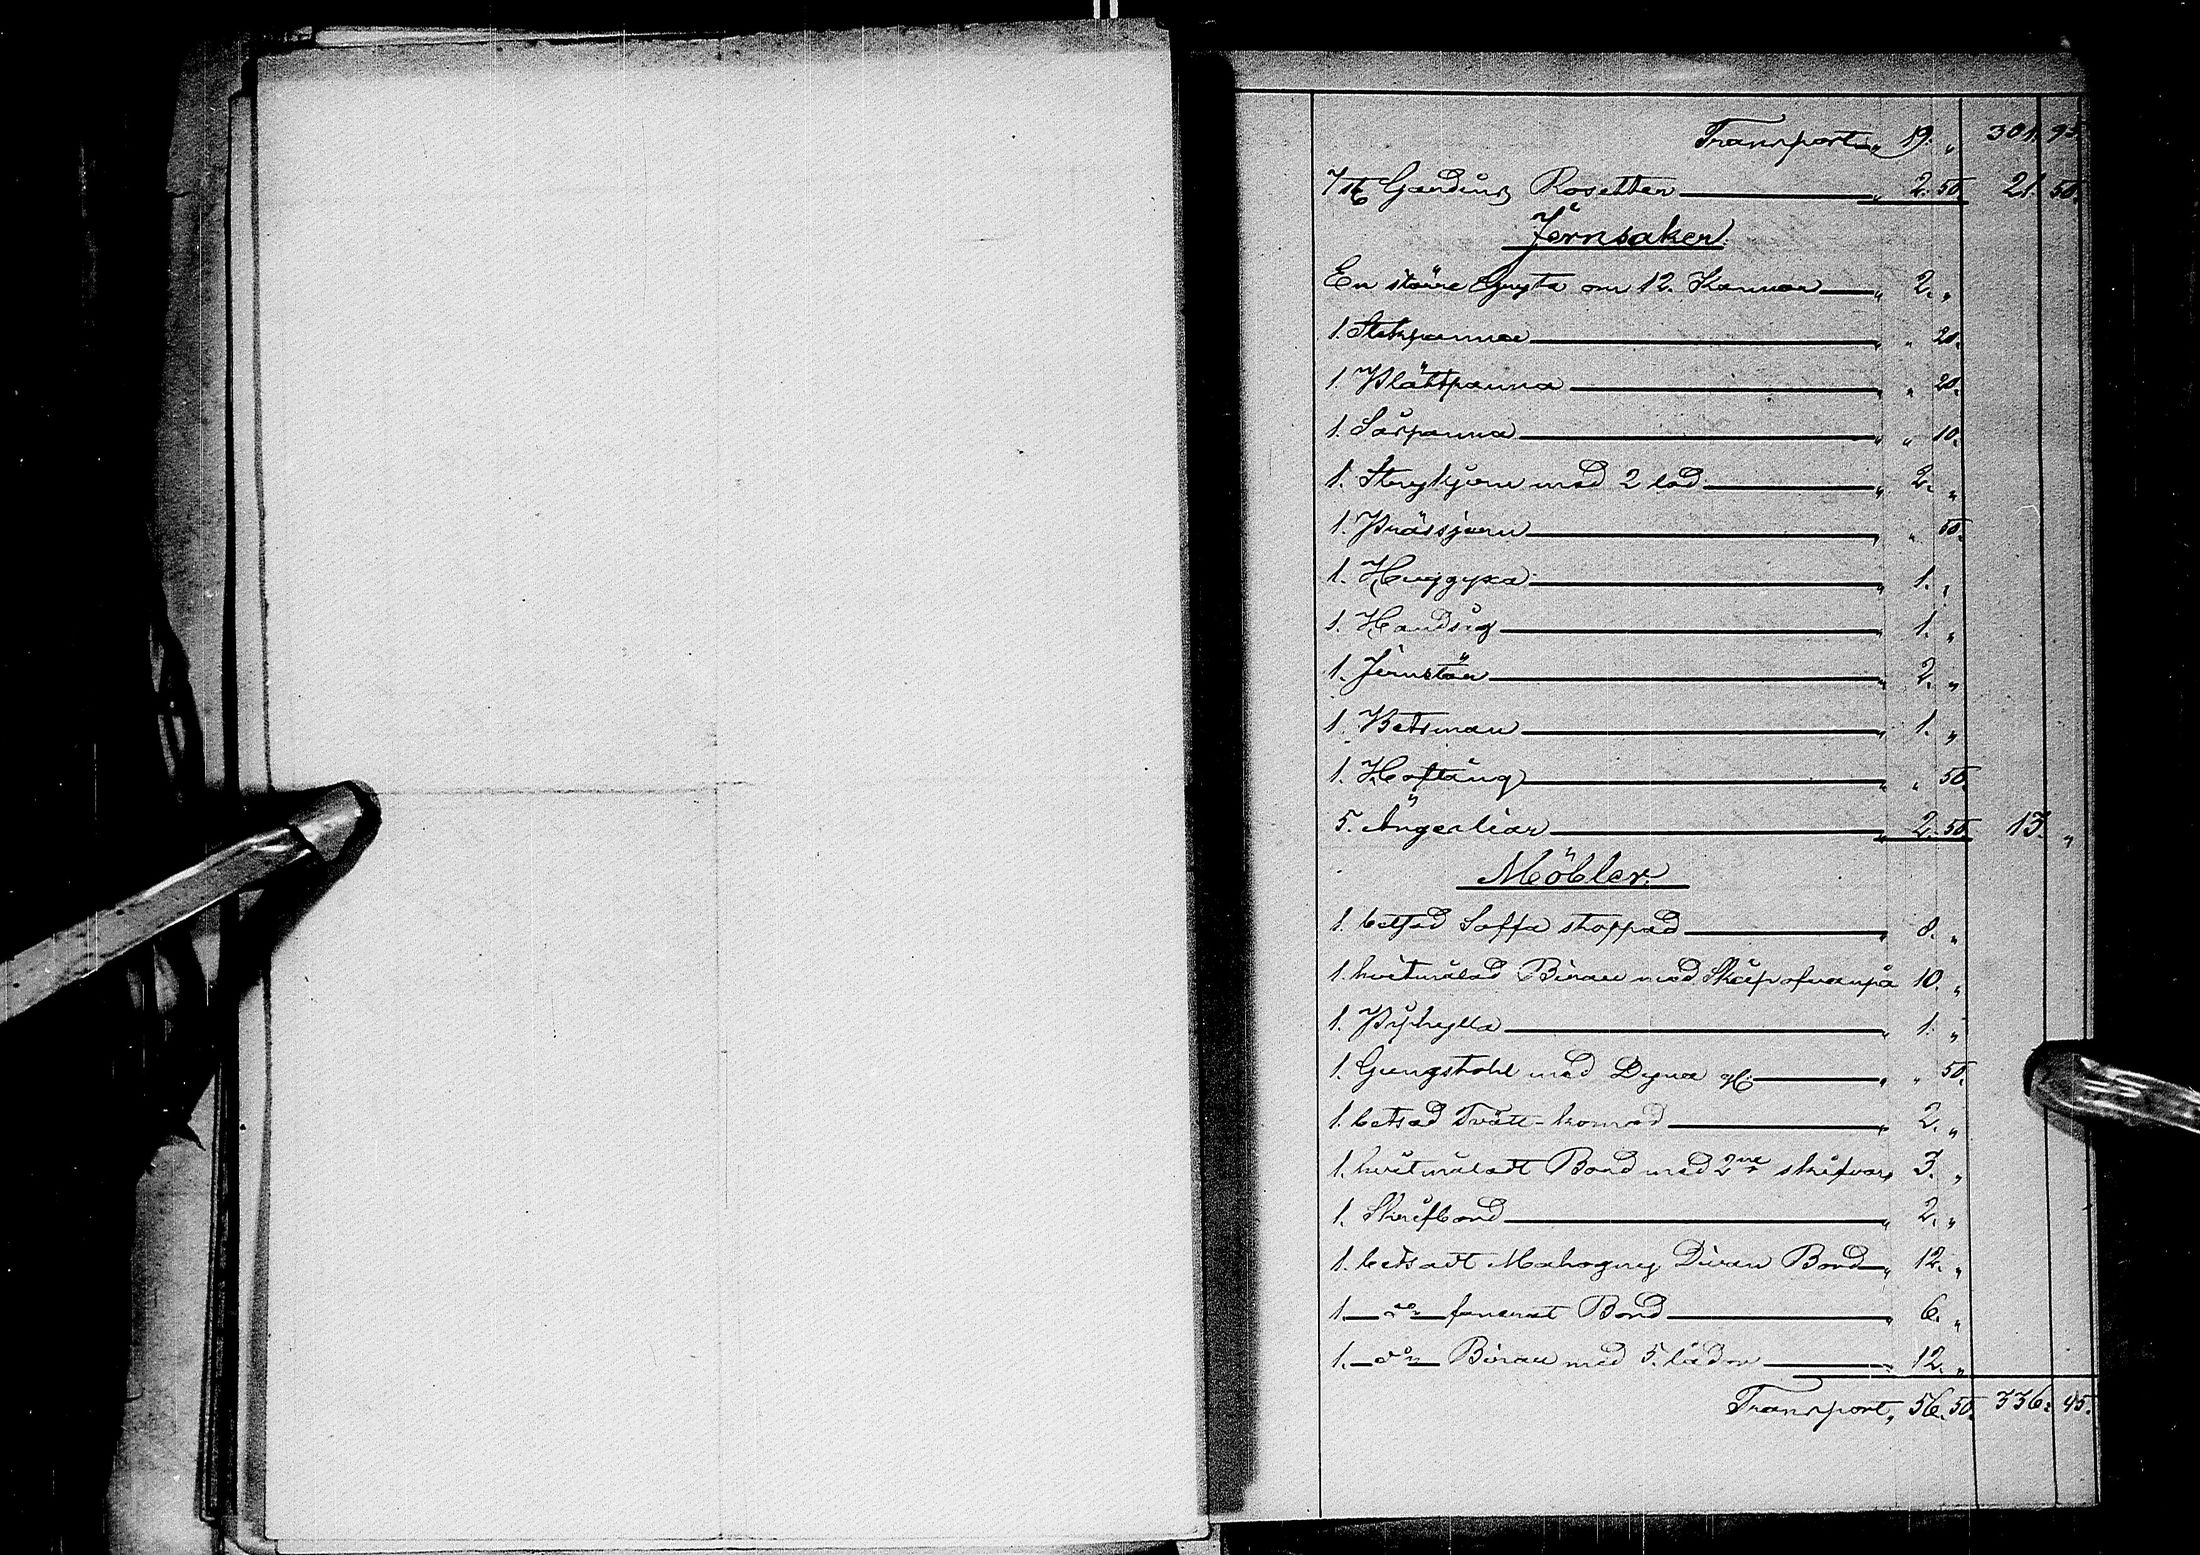 Transport „ 19. „ 301. 95.
7 st Gardins Rosetter „ 2. 50. 21. 50.
Jernsaker.
En större Gryta om 12. Kannor „ 2. „
1. Stekpanna „ „ 20.
1. Plättpanna „ „ 20.
1. Såspanna „ „ 10.
1. Strykjern med 2 lod „ 2. „
1. Prässjern „ „ 50.
1. Huggyxa „ 1. „
1. Handsåg „ 1. „
1. Jernstör „ 2. „
1. Betsman „ 1. „
1. Hoftång „ „ 50.
5. Ängerliar „ 2. 50. 13. „
Möbler.
1. betsad Soffa stoppad „ 8. „
1. hvitmålad Birau med Skåp ofvanpå 10. „
1. Piphylla „ 1. „
1. Gungstohl med Dyna „ „ 50.
1. betsad Tvätt-komod „ 2. „
1. hvitmåladt Bord med 2ne skifvor „ 3. „
1. Skrifbord „ 2. „
1. betsadt Mahogny Divan Bord „ 12. „
1. — d:o — fanerat Bord „ 6. „
1. — d:o — Birau med 5. lådor „ 12. „
Transport „ 56. 50. 336. 45.